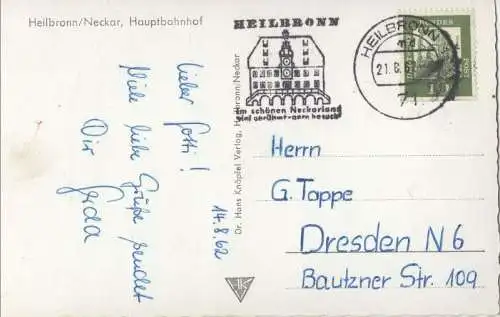 Heilbronn/Neckar, Hauptbahnhof
Lieber Gotti!
Viele liebe Grüße sendet
Dir
Gerda
14.8.62
Dr. Hans Knäpfel Verlag, Heilbronn/Neckar
HEILBRONN
im schönen Neckarland
viel gerühmt - gern besucht
HEILBRONN
21.8.6
POST
Herrn
G. Tappe
Dresden N 6
Bautzner Str. 109